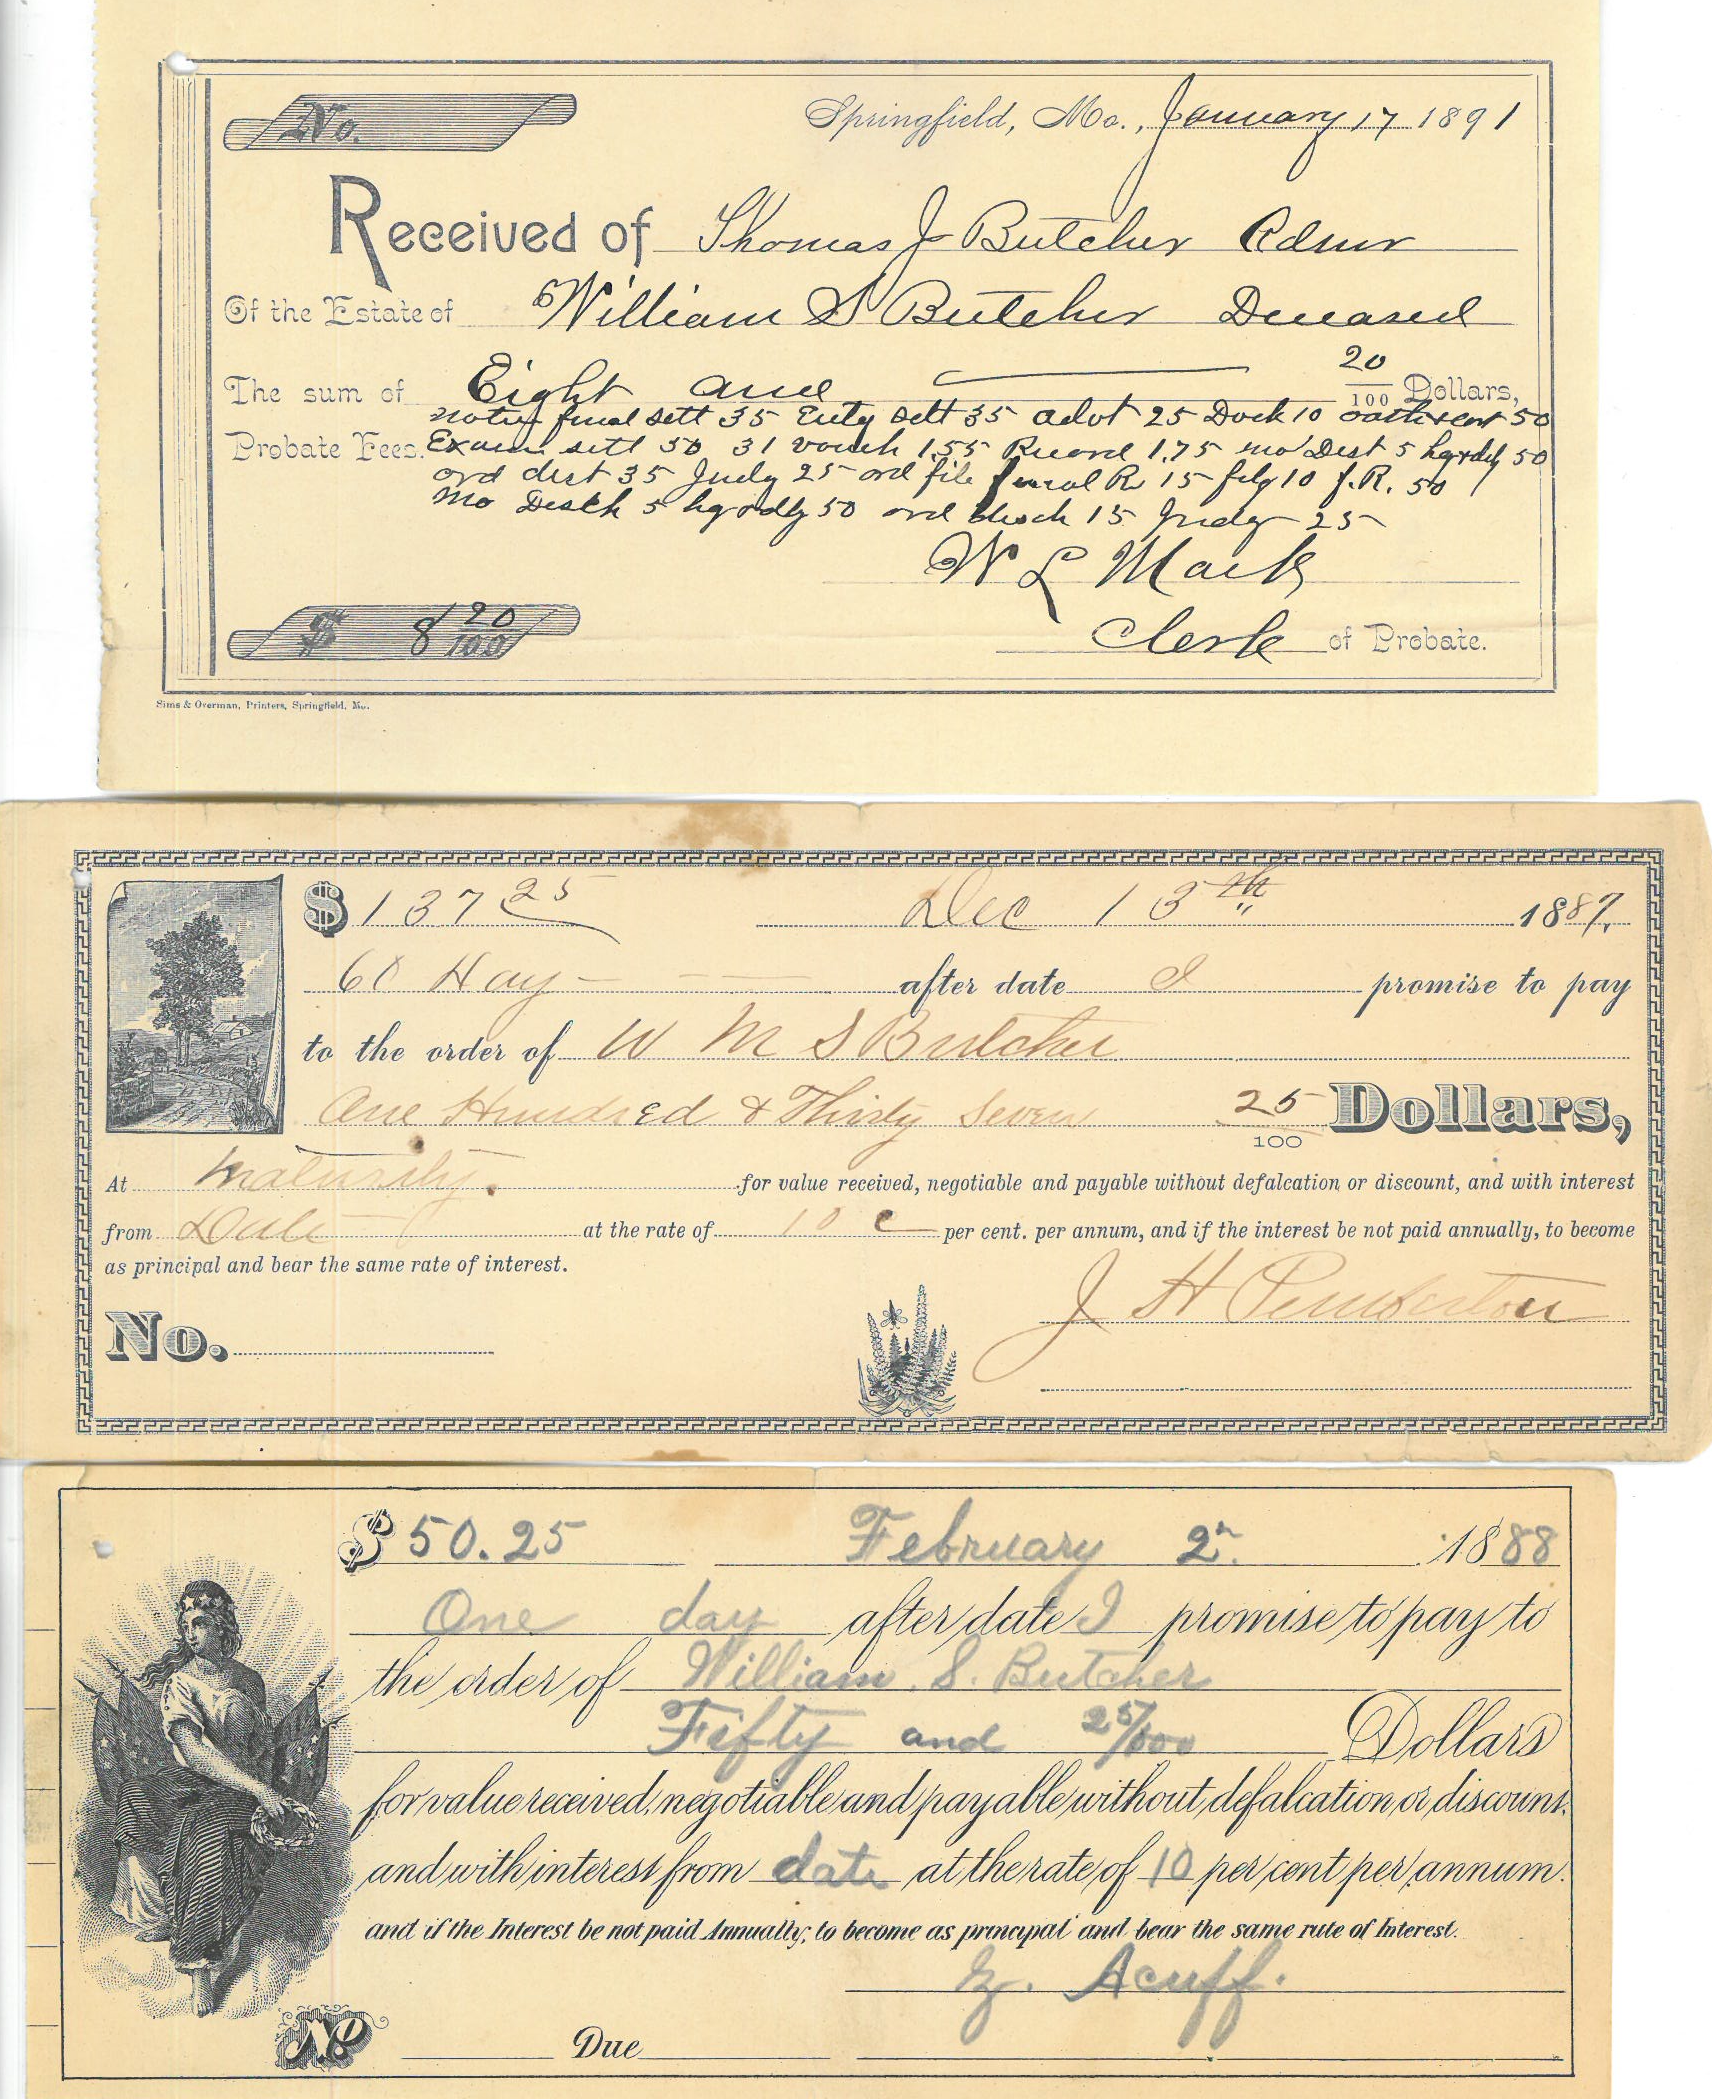 No.
Springfield, Mo., January 17 1891
Received of Thomas J Butcher Admr
Of the Estate of William S Butcher Deceased
20
The sum of Eight and 100 Dollars,
noty final sett 35 Enty sett 35 advt 25 Dock 10 oath 50
Probate Fees. Exam sett 50 31 vouch 1.55 Record 1.75 mo Dist 5 hg rdy 50
ord dist 35 Judg 25 ord file final R 15 filg 10 f.R. 50
mo Disch 5 hg rdy 50 ord disch 15 Judg 25
W L Mack
$ 8 20/100
Clerk of Probate.
Sims & Overman, Printers, Springfield, Mo.
$ 137 25 Dec 13th 1887.
60 Day after date I promise to pay
to the order of W M S Butcher
One Hundred & Thirty Seven 25/100 Dollars,
At maturity. for value received, negotiable and payable without defalcation or discount, and with interest
from Date at the rate of 10 per cent. per annum, and if the interest be not paid annually, to become
as principal and bear the same rate of interest.
J H Pemberton
No.
$ 50.25 February 2n. 1888
One day after date I promise to pay to
the order of William S. Butcher
Fifty and 25/100 Dollars
for value received, negotiable and payable without defalcation or discount,
and with interest from date at the rate of 10 per cent per annum.
and if the Interest be not paid Annually, to become as principal and bear the same rate of Interest.
Acuff.
No Due